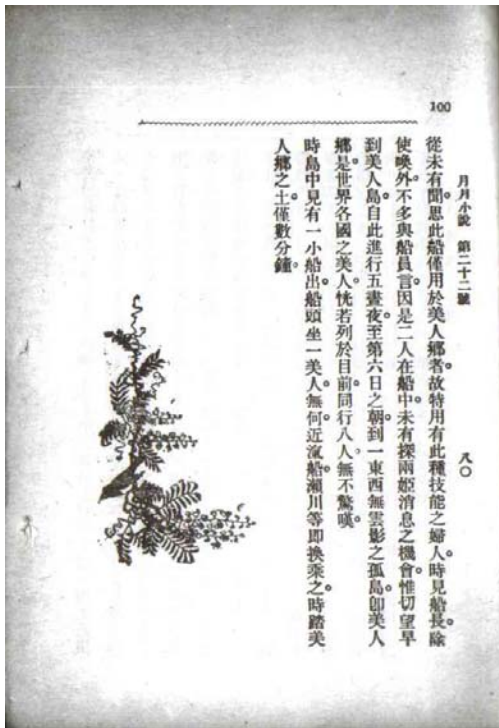 100
月月小說 第二十二號 八〇
從未有聞。思此船僅用於美人鄉者。故特用有此種技能之婦人。時見船長。除
使喚外。不多與船員言。因是二人在船中。未有探兩姬消息之機會。惟切望早
到美人島。自此進行五晝夜。至第六日之朝。到一東西無雲影之孤島。卽美人
鄉。是世界各國之美人。恍若列於目前。同行八人。無不驚嘆。
時島中見有一小船出。船頭坐一美人。無何。近滊船。瀨川等即換乘之。時踏美
人鄉之土僅數分鐘。